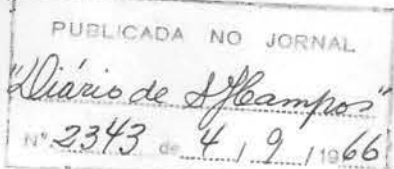 PUBLICADA NO JORNAL
"Diário de SJCampos"
Nº 2343 de 4 / 9 / 1966